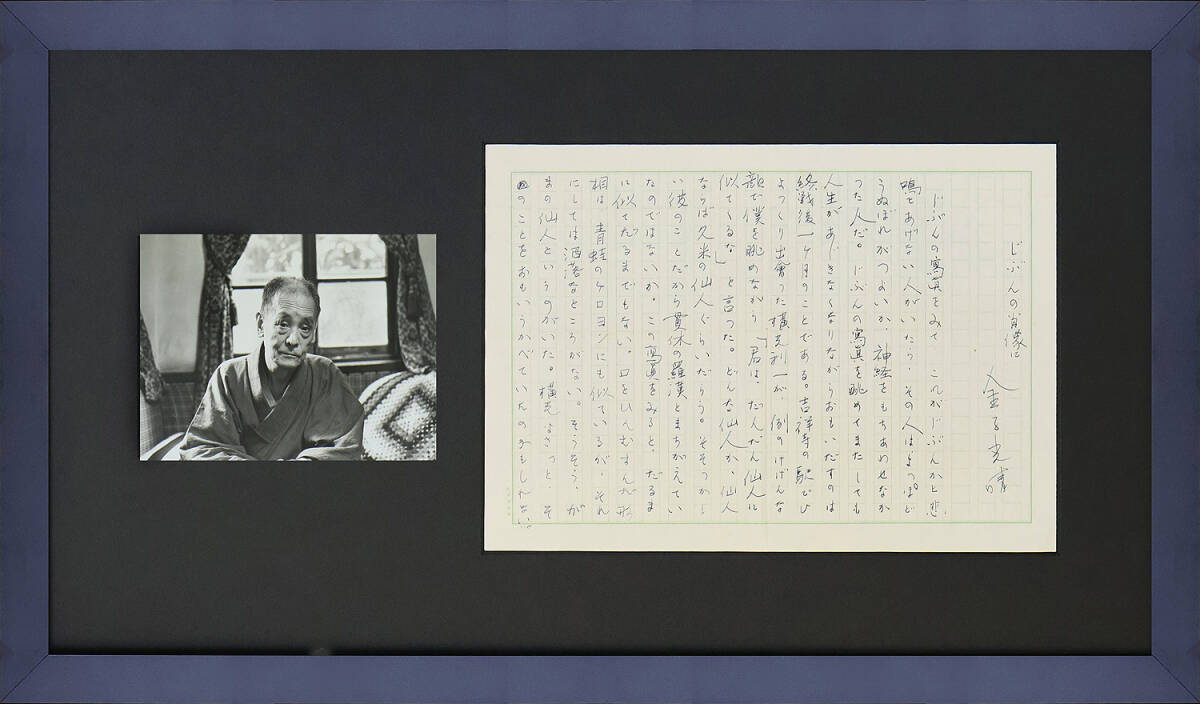 じぶんの肖像に
金子光晴
じぶんの寫真をみて これがじぶんかと悲
鳴をあげない人がいたら、その人はよつぽど
うぬぼれがつよいか、神経をもちあわせなか
つた人だ。じぶんの寫真を眺めてまたしても
人生があぢきなくなりながらおもいだすのは
終戦後一ヶ月のことである。吉祥寺の駅でぴ
よつくり出會つた横光利一が、例のけげんな
顔で僕を眺めながら「君は、だんだん仙人に
似てくるな」と言つた。どんな仙人か、仙人
ならば久米の仙人ぐらいだらう。そそつかし
い彼のことだから貫休の羅漢とまちがえてい
たのではないか。この寫真をみると、だるま
に似てだるまでもない。口をひんむすんだ形
相は、青蛙のケロヨンにも似ているが、それ
にしては洒落なところがない。そうそう、が
まの仙人というのがいた。横光はきつと、そ
のことをおもいうかべていたのかもしれない。